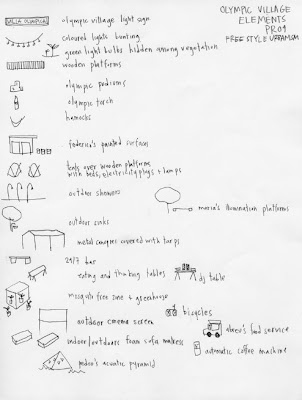 OLYMPIC VILLAGE
ELEMENTS
PROJ
FREE STYLE URBANISM
VILLA OLIMPICA
olympic village light sign
coloured lights bunting
green light bulbs hidden among vegetation
wooden platforms
olympic podiums
olympic torch
hamocks
federica's painted surfaces
tents over wooden platforms
with beds, electricity plugs + lamps
outdoor showers
maria's illumination platforms
outdoor sinks
metal canopies covered with tarps
24/7 bar
eating and thinking tables
dj table
mosquito free zone + greenhouse
bicycles
outdoor cinema screen
food service
indoor/outdoors foam sofa matress
automatic coffee machine
pedro's acuatic pyramid